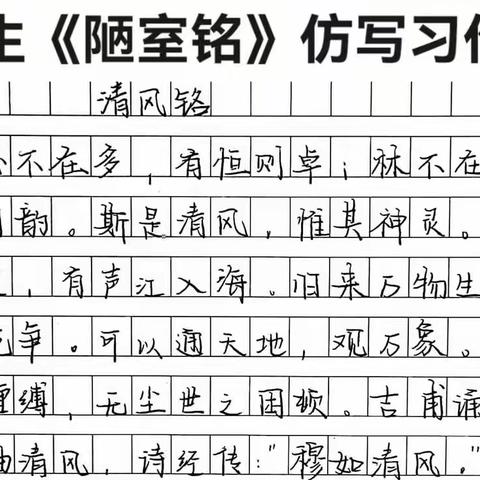 生《陋室铭》仿写习作
清风铭
不在多，有恒则卓；林不在
韵。斯是清风，惟其神灵。
，有声江入海。归来万物生
竞争。可以通天地，观万象。
缠缚，无尘世之困顿。吉甫诵
清风，诗经传："穆如清风。"